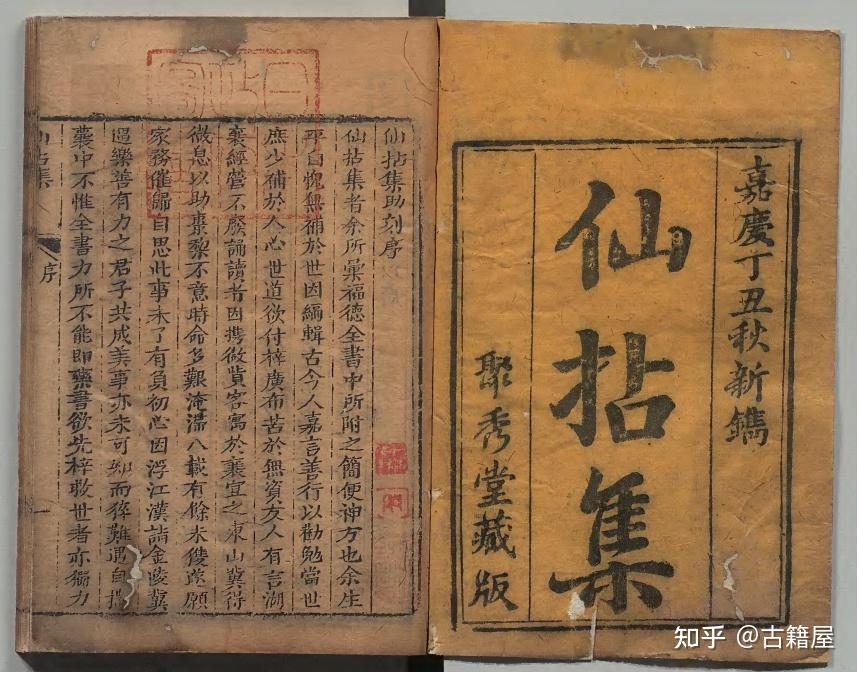 嘉慶丁丑秋新鐫
仙拈集
聚秀堂藏版
仙拈集助刻序
仙拈集者余所彙福德全書中所附之簡便神方也余生
平自愧無補於世因編輯古今人嘉言善行以勸勉當世
庶少補於人心世道欲付梓廣布苦於無資友人有言湖
襄經營不廢誦讀者因携微貲客寓於襄宜之東山冀得
微息以助棗梨不意時命多艱淹滯八載有餘未獲遂願
家務催歸自思此事未了有負初心因浮江漢詣金陵冀
遇樂善有力之君子共成美事亦未可知而猝難遇自揣
囊中不惟全書力所不能即藥書欲先梓救世者亦獨力
仙拈集
序
一
知乎 @古籍屋